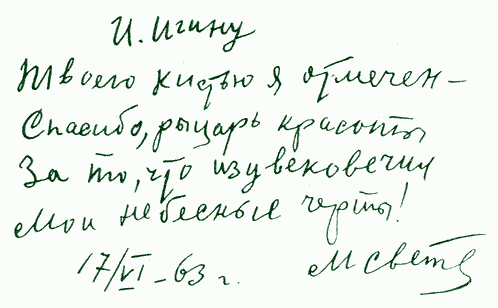 И. Игину
Твоею кистью я отмечен —
Спасибо, рыцарь красоты
За то, что изувековечил
Мои небесные черты!
17/VI – 63 г. М Светл